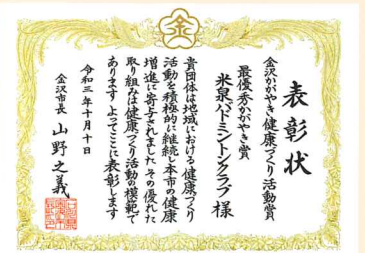 金
表彰状
金沢かがやき健康づくり活動賞
最優秀かがやき賞
米泉バドミントンクラブ 様
貴団体は地域における健康づくり
活動を積極的に継続し本市の健康
増進に寄与されましたその優れた
取り組みは健康づくり活動の模範で
あります よってここに表彰します
令和三年十月十日
金沢市長 山野之義